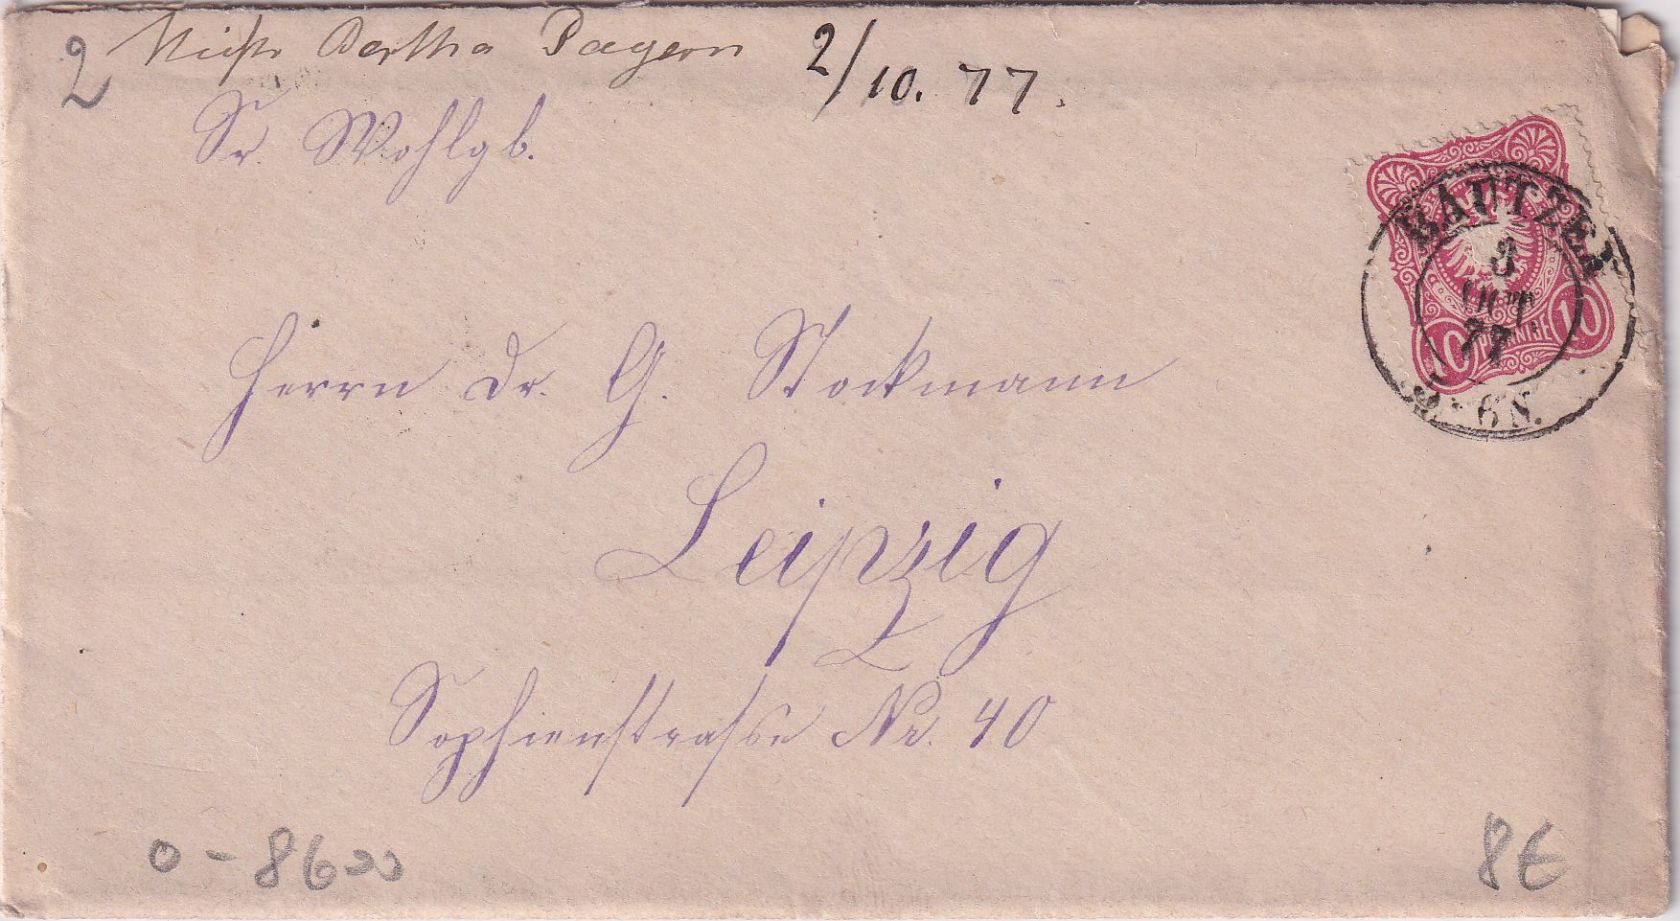 2 Bertha Pagern 2/10. 77.
Sr. Wohlgb.
BAUTZEN
3
OCT
77
10 PFENNIGE 10
6 N.
Herrn Dr. G. Stockmann
Leipzig
Sophienstraße Nr. 40
0-8600
8€